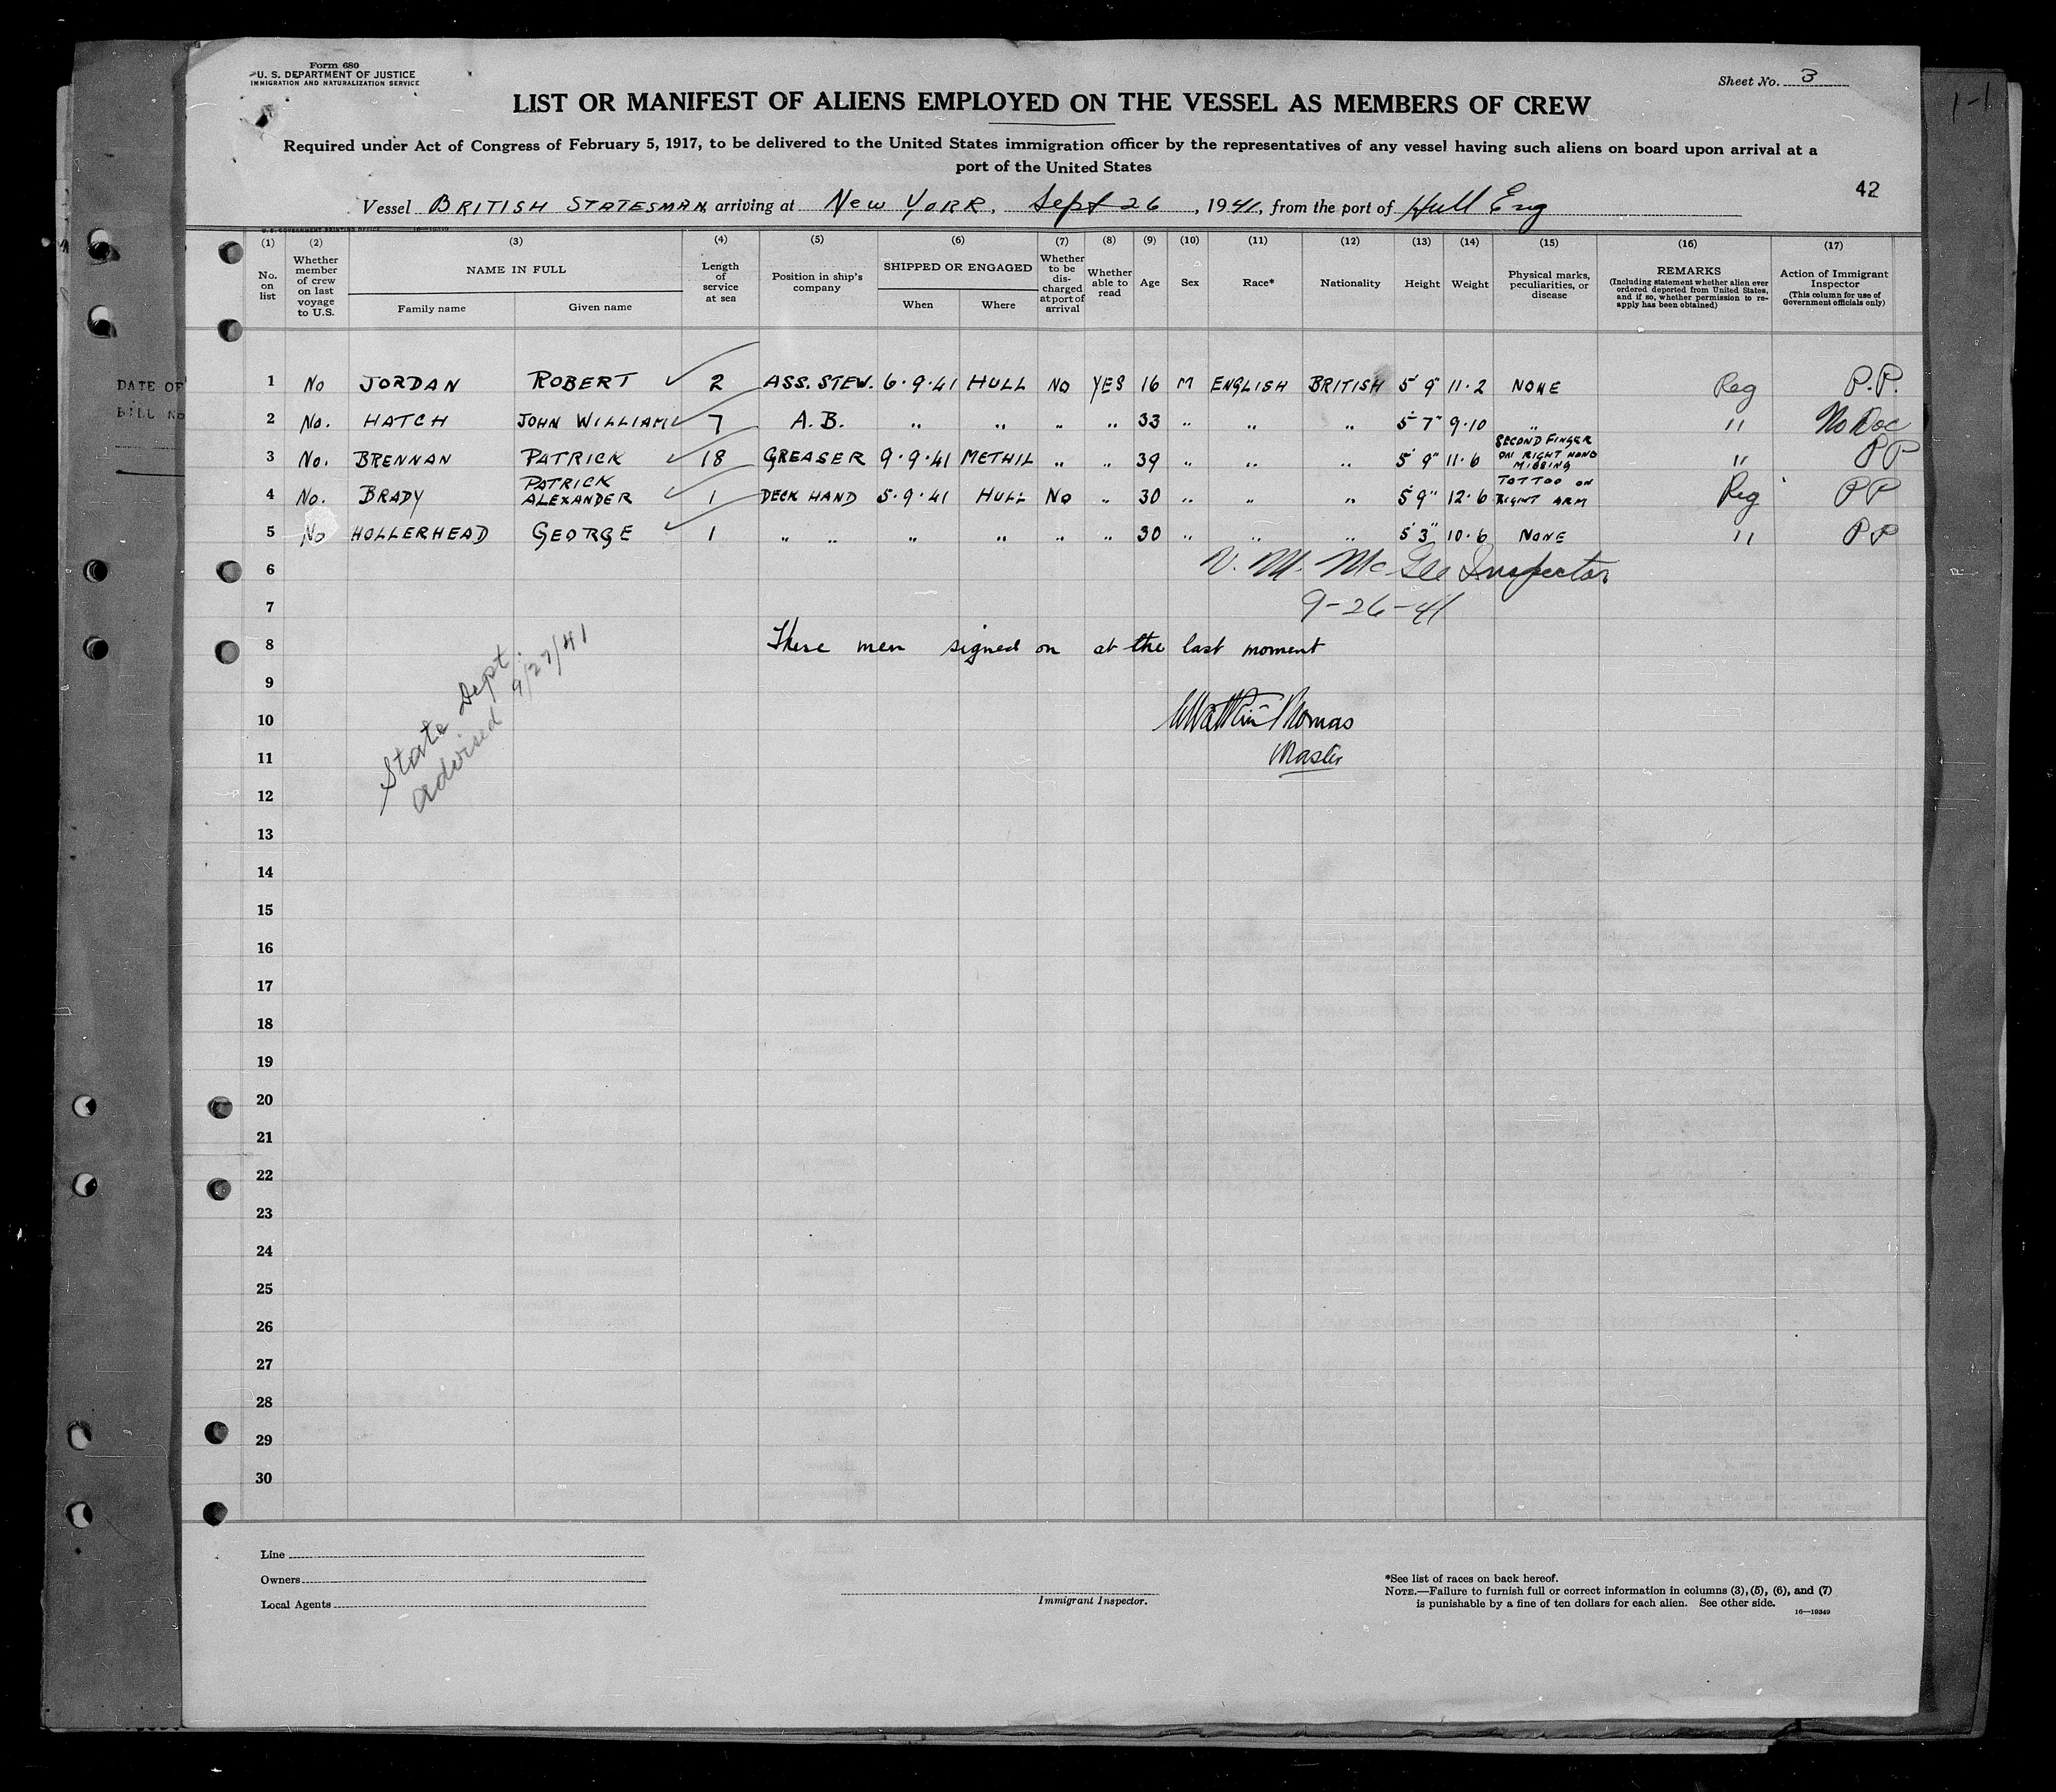 Form 680
U. S. DEPARTMENT OF JUSTICE
IMMIGRATION AND NATURALIZATION SERVICE
Sheet No. 3
1-1
LIST OR MANIFEST OF ALIENS EMPLOYED ON THE VESSEL AS MEMBERS OF CREW
Required under Act of Congress of February 5, 1917, to be delivered to the United States immigration officer by the representatives of any vessel having such aliens on board upon arrival at a
port of the United States
42
Vessel BRITISH STATESMAN, arriving at NEW YORK, Sept 26, 1941, from the port of Hull Eng
(1) (2) (3) (4) (5) (6) (7) (8) (9) (10) (11) (12) (13) (14) (15) (16) (17)
No. on list
Whether member of crew on last voyage to U.S.
NAME IN FULL
Family name
Given name
Length of service at sea
Position in ship's company
SHIPPED OR ENGAGED
When
Where
Whether to be discharged at port of arrival
Whether able to read
Age
Sex
Race*
Nationality
Height
Weight
Physical marks, peculiarities, or disease
REMARKS
(Including statement whether alien ever ordered deported from United States, and if so, whether permission to reapply has been obtained)
Action of Immigrant Inspector
(This column for use of Government officials only)
DATE OF
BILL NO
1 No JORDAN ROBERT ✓ 2 ASS. STEW. 6·9·41 HULL NO YES 16 M ENGLISH BRITISH 5' 9" 11·2 NONE Reg P.P.
2 No. HATCH JOHN WILLIAM ✓ 7 A.B. " " " " 33 " " " 5' 7" 9·10 " " No Doc
3 No. BRENNAN PATRICK ✓ 18 GREASER 9·9·41 METHIL " " 39 " " " 5' 9" 11·6 SECOND FINGER ON RIGHT HAND MISSING " PP
4 No. BRADY PATRICK ALEXANDER ✓ 1 DECK HAND 5·9·41 HULL NO " 30 " " " 5' 9" 12·6 TATTOO ON RIGHT ARM Reg PP
5 No HOLLERHEAD GEORGE ✓ 1 " " " " " " 30 " " " 5' 3" 10·6 NONE " PP
6 V. M. McGee Inspector
7 9-26-41
8 These men signed on at the last moment
State Dept.
advised 9/27/41
9
10 Thomas
11 Master
12
13
14
15
16
17
18
19
20
21
22
23
24
25
26
27
28
29
30
Line
Owners
Local Agents
Immigrant Inspector.
*See list of races on back hereof.
NOTE.—Failure to furnish full or correct information in columns (3), (5), (6), and (7)
is punishable by a fine of ten dollars for each alien. See other side.
16—19349